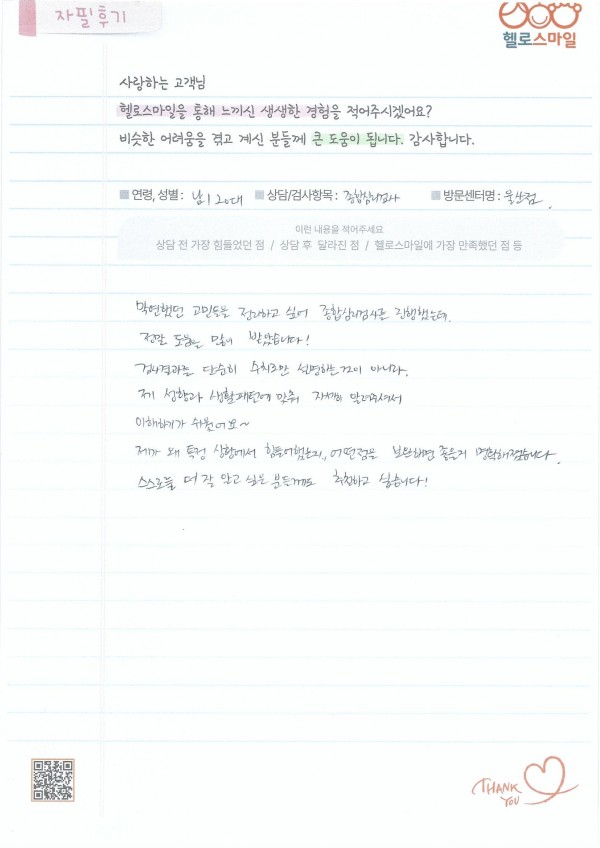 자필후기
헬로스마일
사랑하는 고객님
헬로스마일을 통해 느끼신 생생한 경험을 적어주시겠어요?
비슷한 어려움을 겪고 계신 분들께 큰 도움이 됩니다. 감사합니다.
연령, 성별 : 남 | 20대 상담/검사항목 : 종합심리검사 방문센터명 : 울산점.
이런 내용을 적어주세요
상담 전 가장 힘들었던 점 / 상담 후 달라진 점 / 헬로스마일에 가장 만족했던 점 등
막연했던 고민들을 정리하고 싶어 종합심리검사를 진행했는데,
정말 도움을 많이 받았습니다!
검사결과를 단순히 수치로만 설명하는것이 아니라,
제 성향과 생활패턴에 맞춰 자세히 알려주셔서
이해하기가 쉬웠어요~
제가 왜 특정 상황에서 힘들어했는지, 어떤점을 보완하면 좋을지 명확해졌습니다.
스스로를 더 잘 알고 싶은 분들께도 추천하고 싶습니다!
THANK
YOU